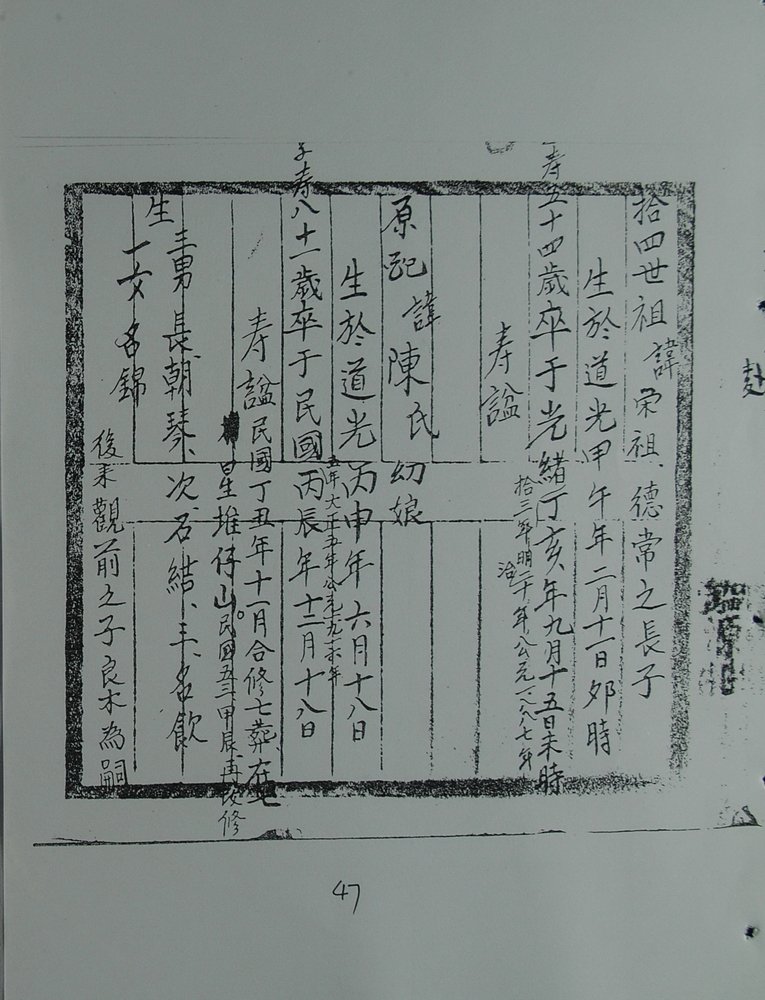 拾四世祖諱宗祖、德常之長子
生於道光甲午年二月十一日卯時
寿五十四歲卒于光緒丁亥年九月十五日未時
拾三年明治二十年公元一八八七年
寿諡
原配諱陳氏幼娘
生於道光丙申年六月十八日
五年大正五年公元一九一六年
寿八十一歲卒于民國丙辰年十二月十八日
寿諡民國丁丑年十一月合修七葬、在七
星堆仔山。民国五三甲辰再改修
生三男長朝琴、次名結、三名飲
一女名錦
後来觀前之子良木為嗣
47